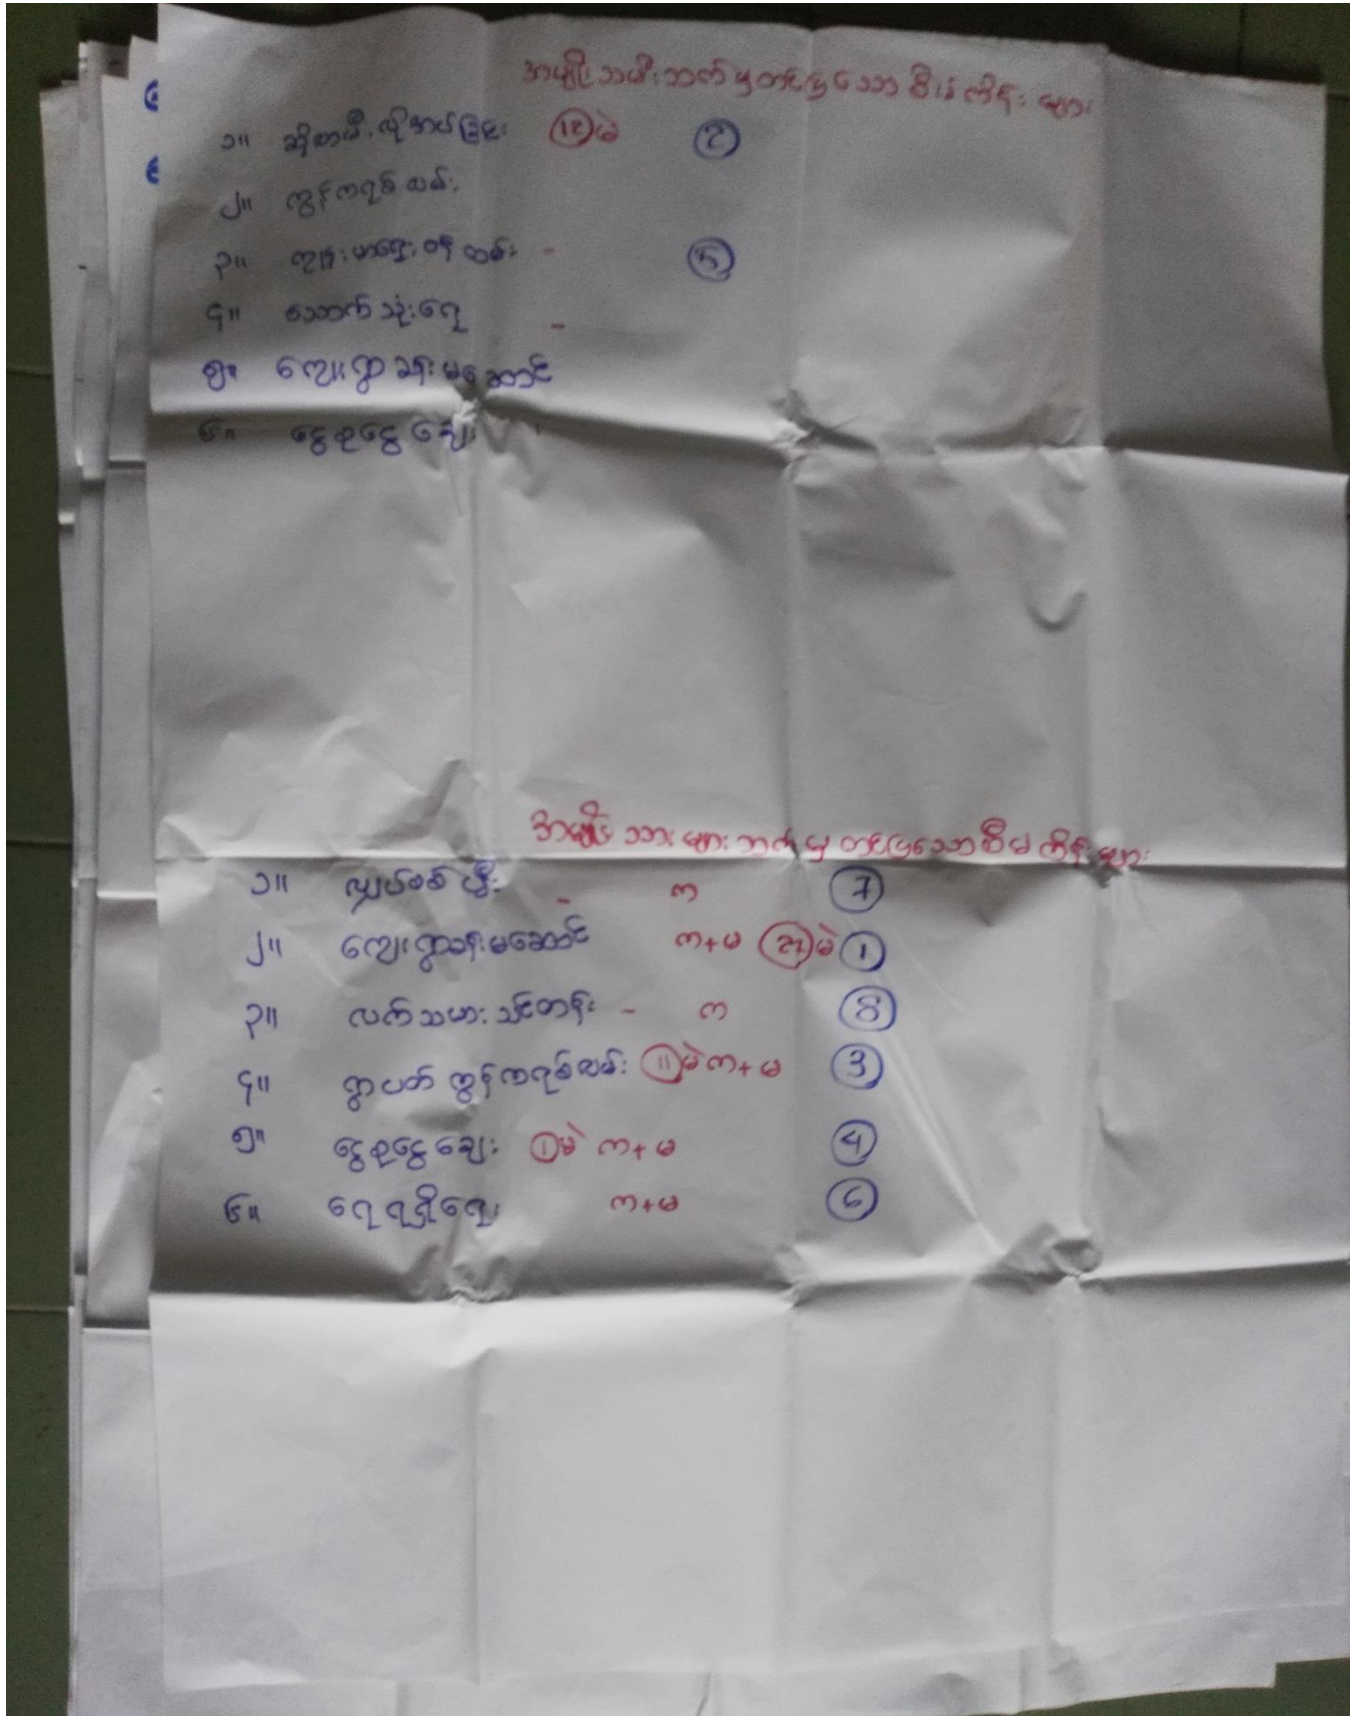 အမျိုးသမီးဘက်မှတင်ပြသောစီမံကိန်းများ
၁။ ဆိုလာမီးလိုအပ်ခြင်း ⑫မဲ ②
၂။ ကွန်ကရစ်လမ်း
၃။ ကျန်းမာရေးဝန်ထမ်း - ⑤
၄။ သောက်သုံးရေ -
၅။ ကျေးရွာခန်းမဆောင်
၆။ ငွေစုငွေချေး
အမျိုးသားများဘက်မှတင်ပြသောစီမံကိန်းများ
၁။ လျှပ်စစ်မီး - က ⑦
၂။ ကျေးရွာခန်းမဆောင် က+မ ㉑မဲ ①
၃။ လက်သမားသင်တန်း - က ⑧
၄။ ရွာပတ်ကွန်ကရစ်လမ်း ⑪မဲ က+မ ③
၅။ ငွေစုငွေချေး ①မဲ က+မ ④
၆။ ရေရရှိရေး က+မ ⑥